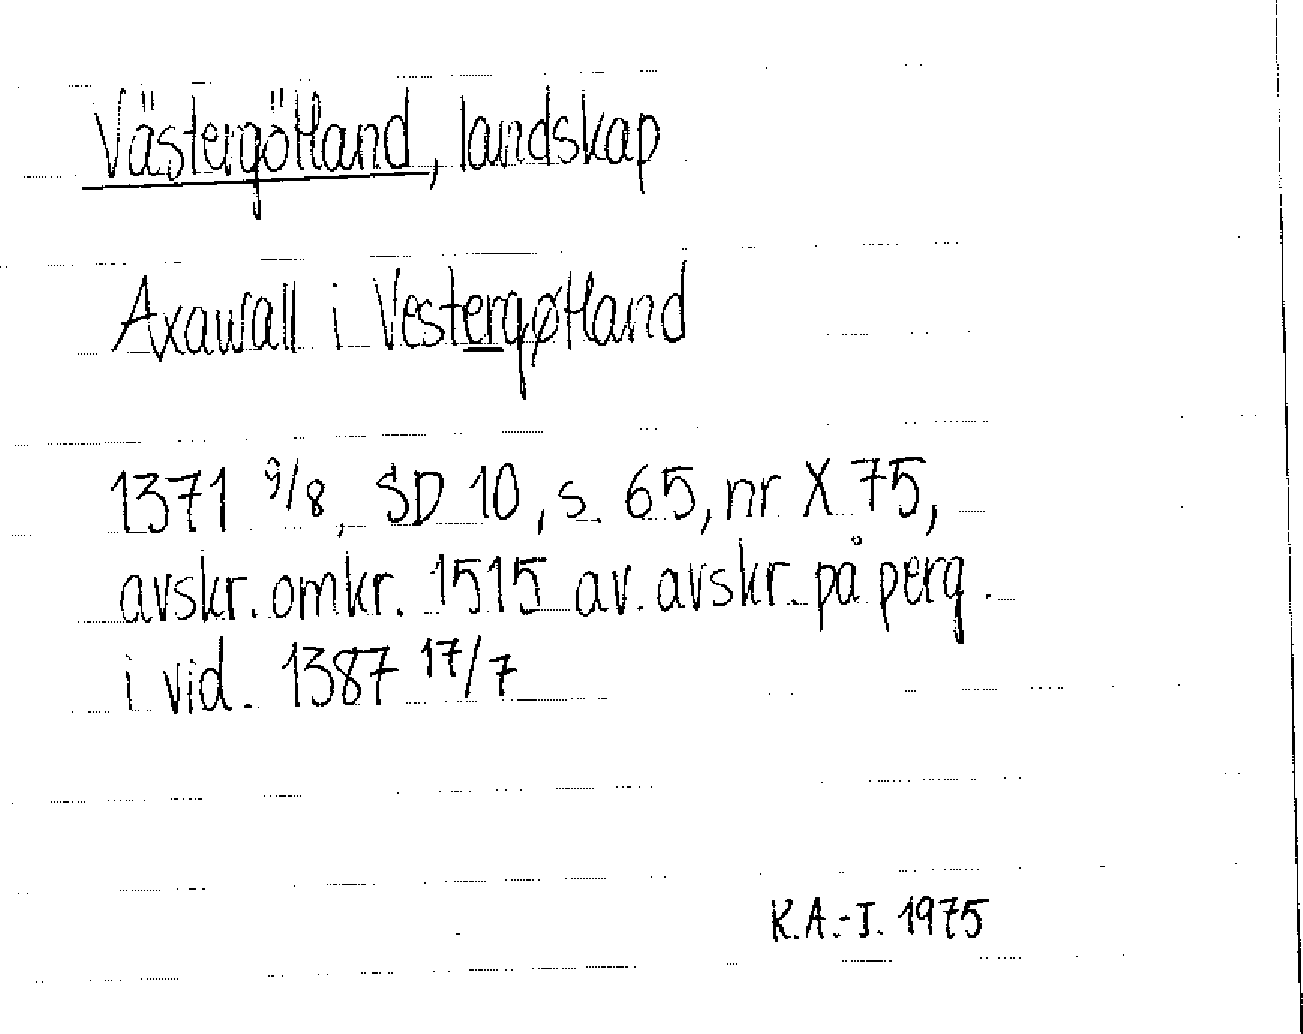 Västergötland, landskap
Axawall i Vestergøtland
1371 9/8, SD 10, s. 65, nr X 75,
avskr. omkr. 1515 av avskr. på perg.
i vid. 1387 17/7
K.A.-J. 1975